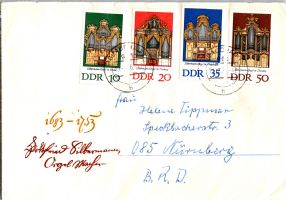 DDR 10
DDR 20
DDR 35
DDR 50
1683 – 1753
Gottfried Silbermann
Orgel
Frau
Helene Tippmann
Speckbacherstr. 3
085 Nürnberg
B. R. D.